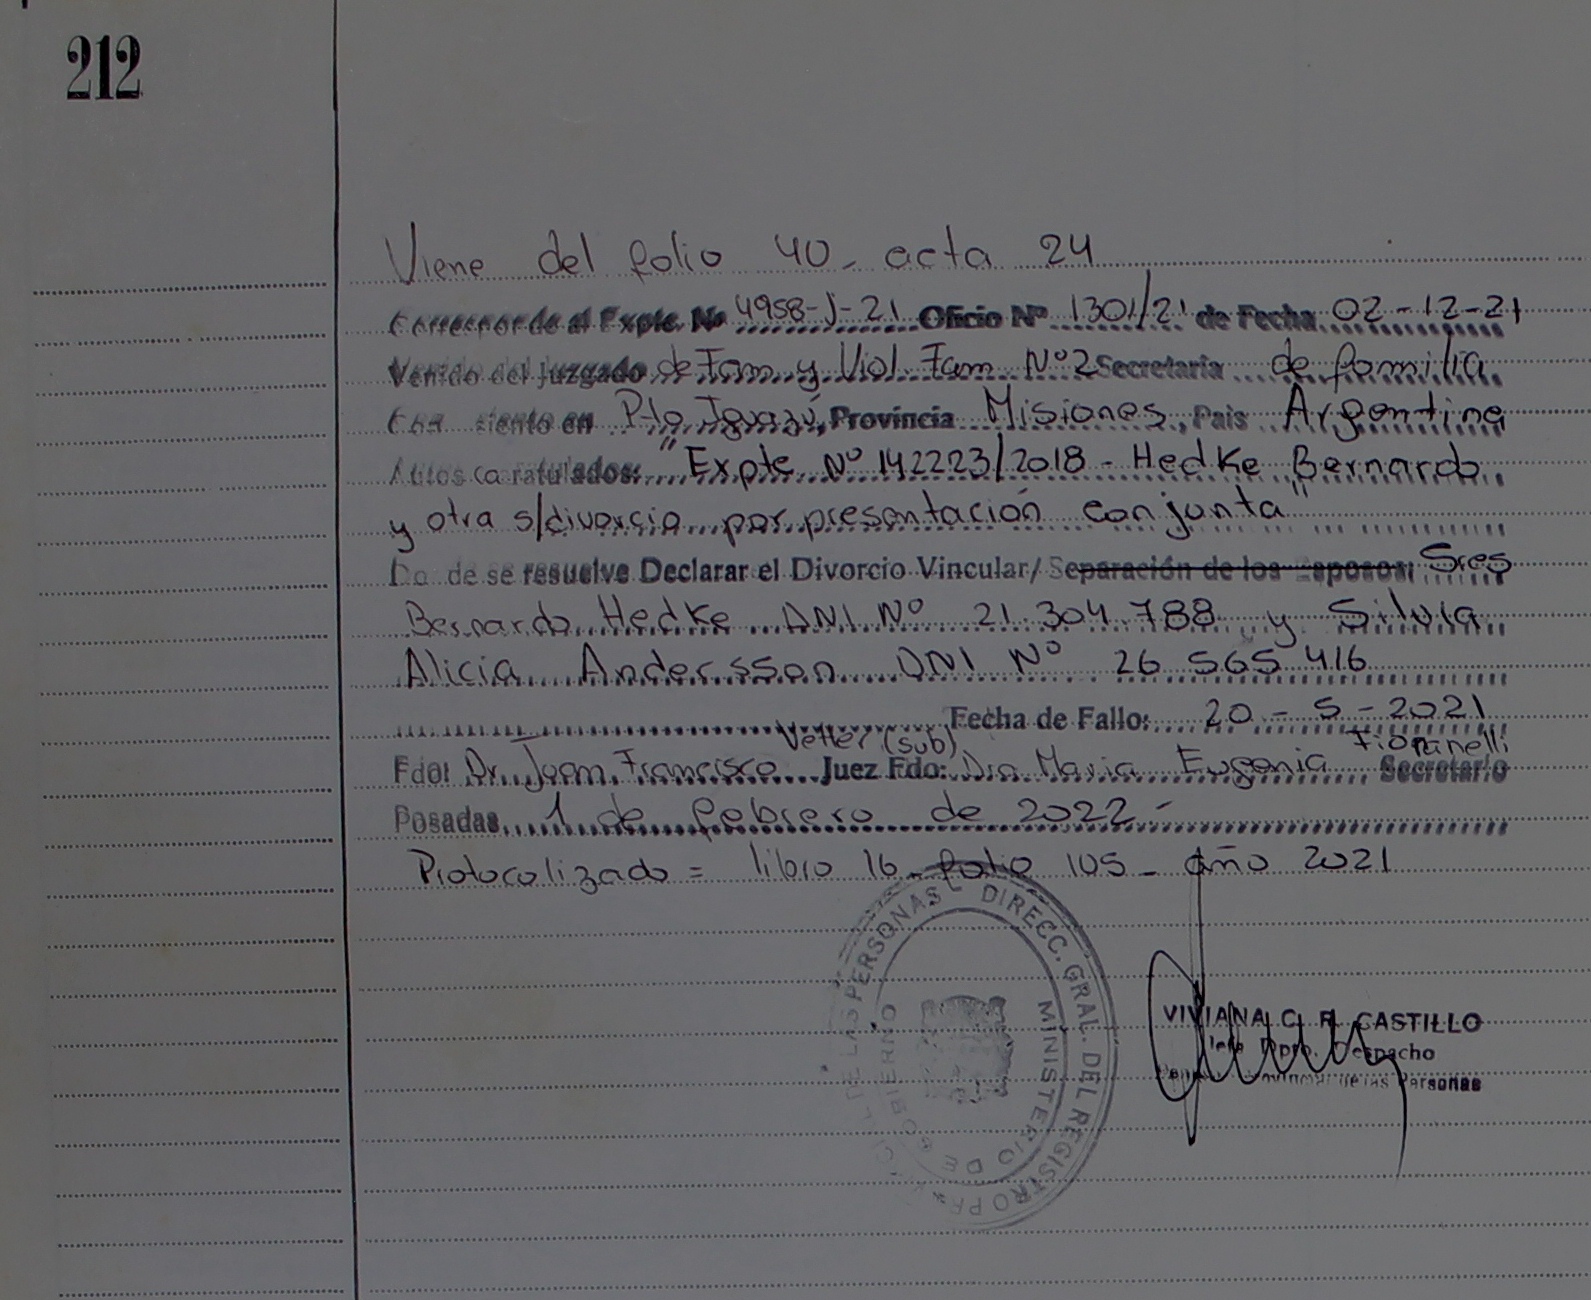 212
Viene del folio 40 - acta 24
Corresponde al Expte. Nº 4958-J-21 Oficio Nº 1301/21 de Fecha 02-12-21
Venido del Juzgado de Fam y Viol. Fam Nº2 Secretaria de familia
Con asiento en Pto Iguazú, Provincia Misiones, Pais Argentina
Autos caratulados: "Expte Nº 142223/2018 - Hedke Bernardo
y otra s/divorcio por presentación conjunta"
Donde se resuelve Declarar el Divorcio Vincular/ Separación de los Esposos: Sres
Bernardo Hedke DNI Nº 21.304.788 y Silvia
Alicia Andersson DNI Nº 26 565 416
Fecha de Fallo: 20-5-2021
Fdo: Dr. Juan Francisco Vetter (sub) Juez Fdo: Dra Maria Eugenia Fioranelli Secretario
Posadas, 1 de febrero de 2022-
Protocolizado = libro 16 - folio 105 - año 2021
DIRECC. GRAL. DEL REGISTRO DE LAS PERSONAS
MINISTERIO DE GOBIERNO
VIVIANA C. R. CASTILLO
Jefe Dpto. Despacho
Provincial de las Personas